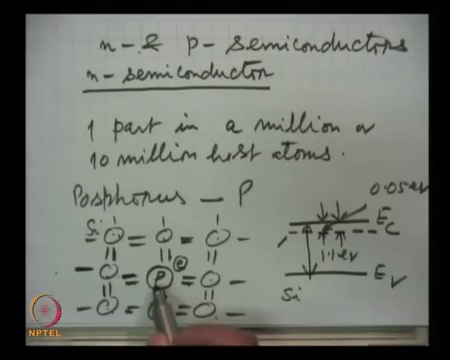 n- & p- semiconductors
n- semiconductor
1 part in a million or
10 million host atoms.
Posphorus — P
0.05 eV
Si
Ec
P e
1.1 eV
Ev
Si
NPTEL